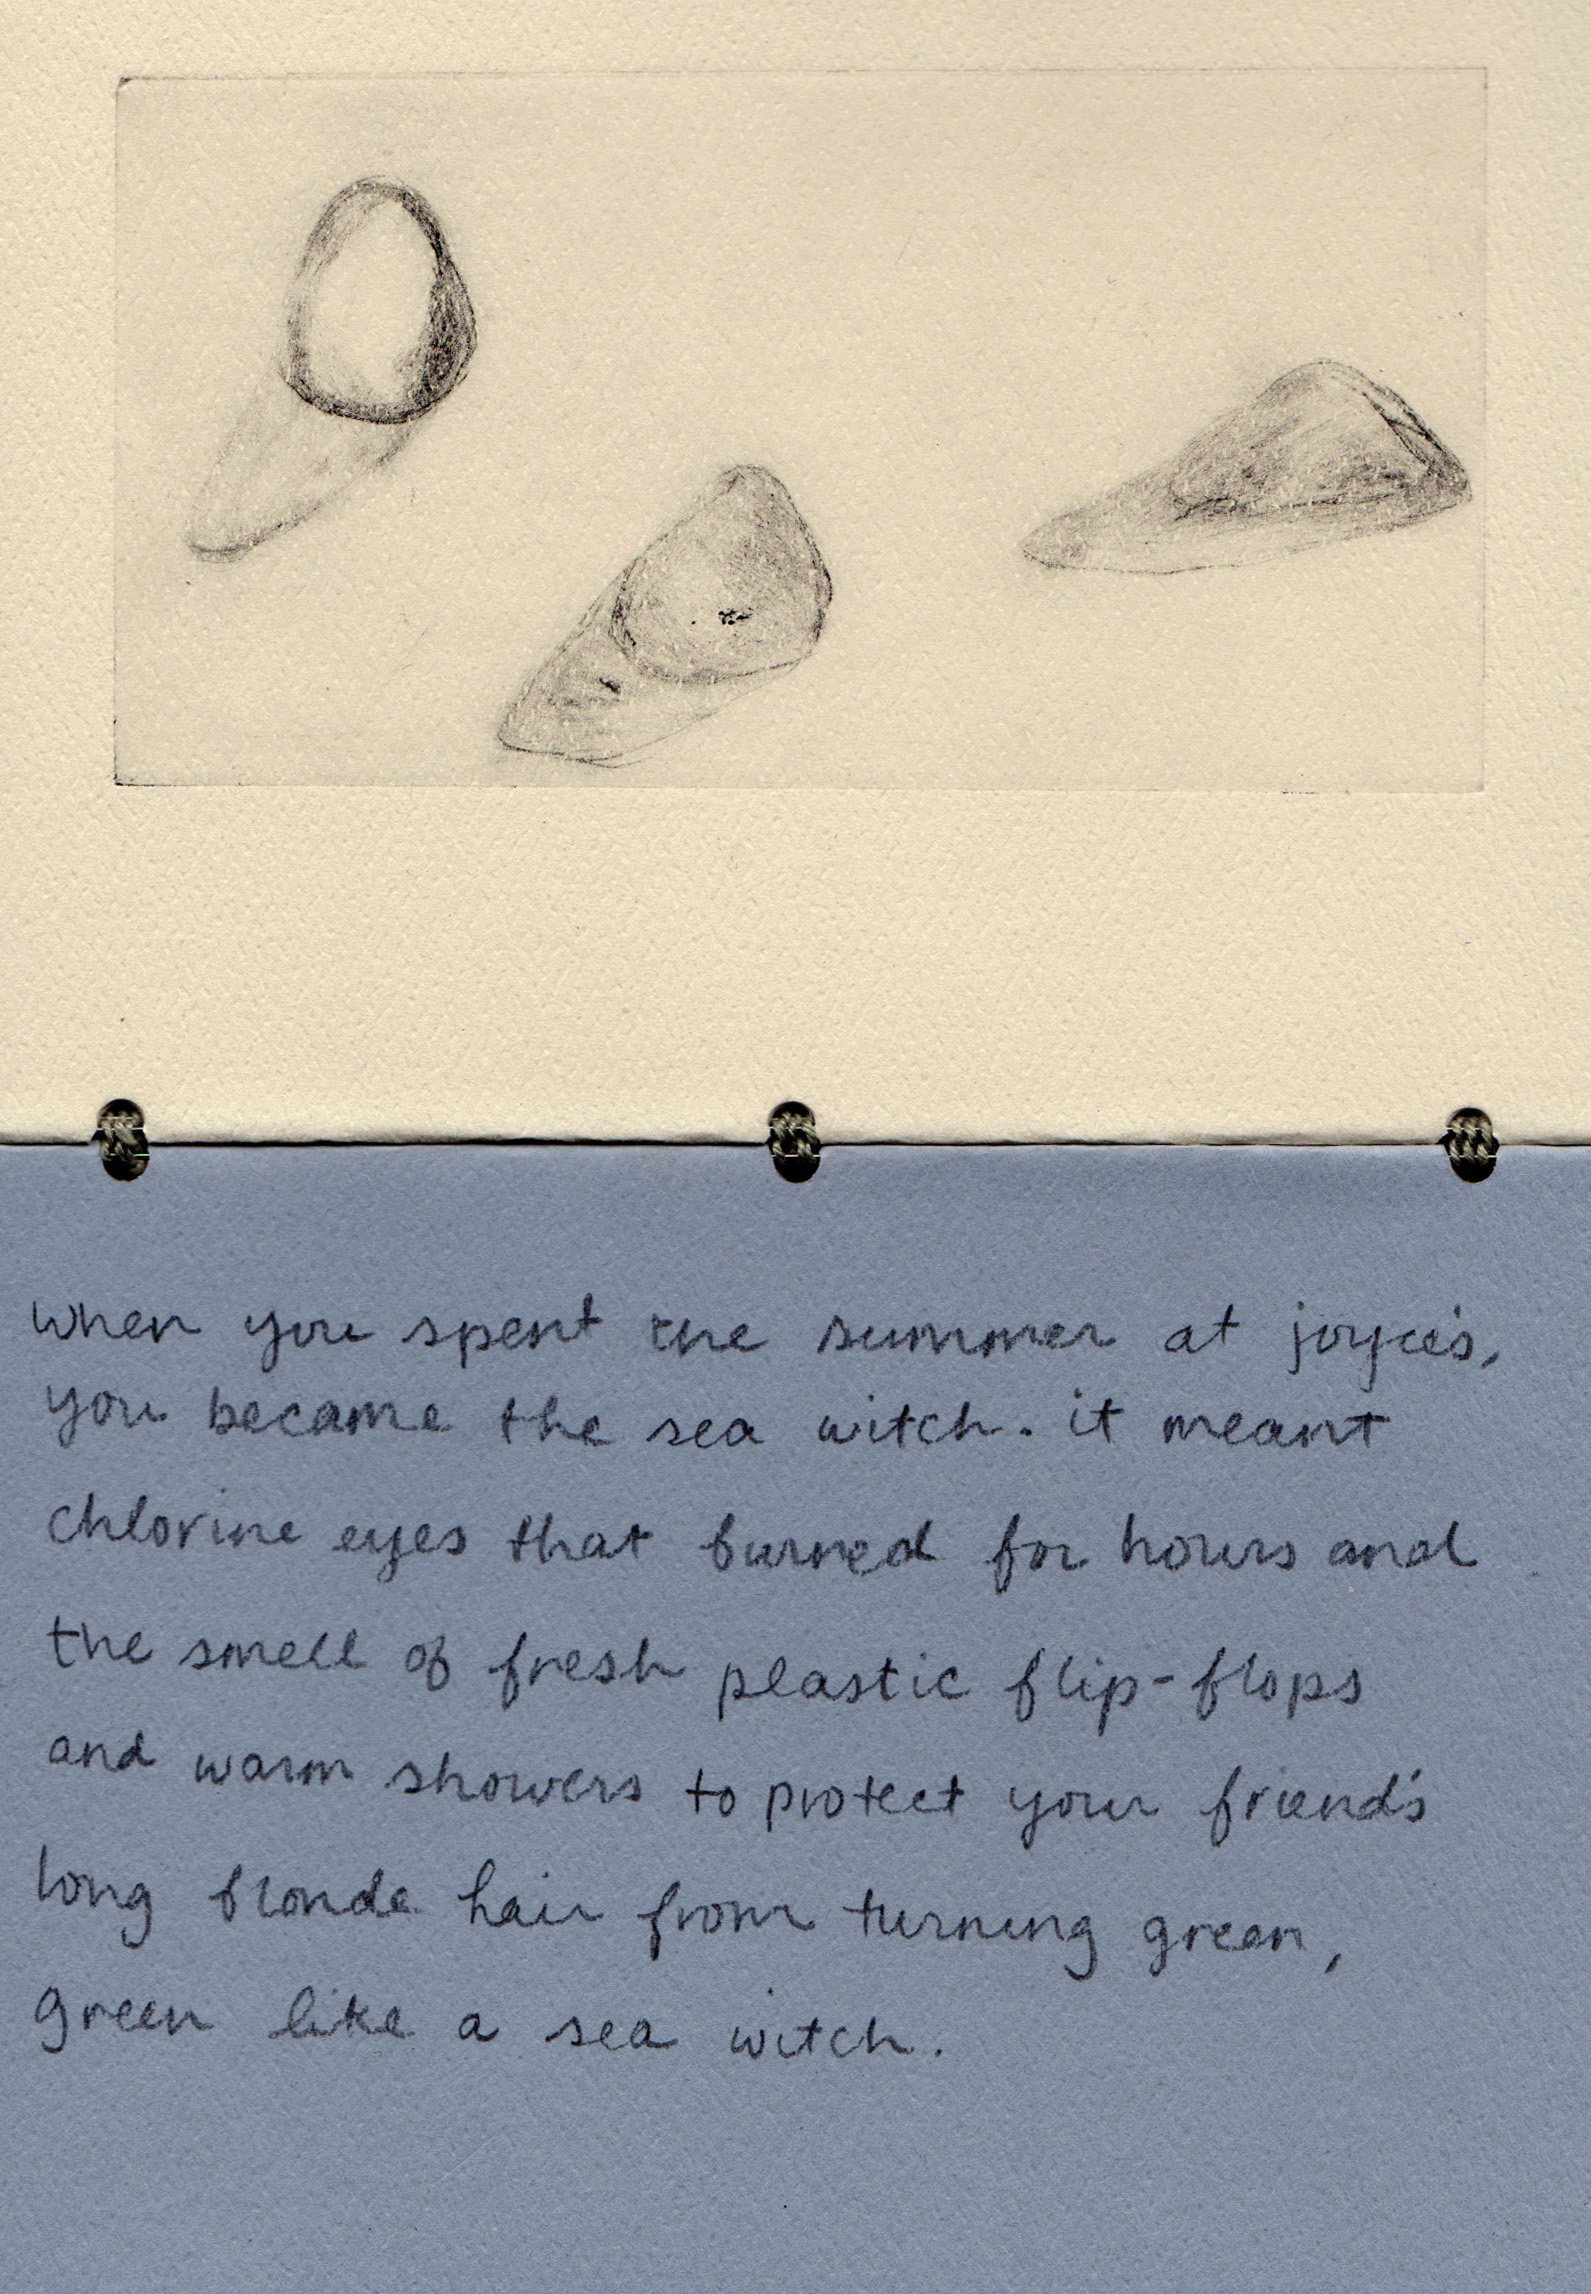 when you spent the summer at joyce's,
you became the sea witch. it meant
chlorine eyes that burned for hours and
the smell of fresh plastic flip-flops
and warm showers to protect your friend's
long blonde hair from turning green,
green like a sea witch.